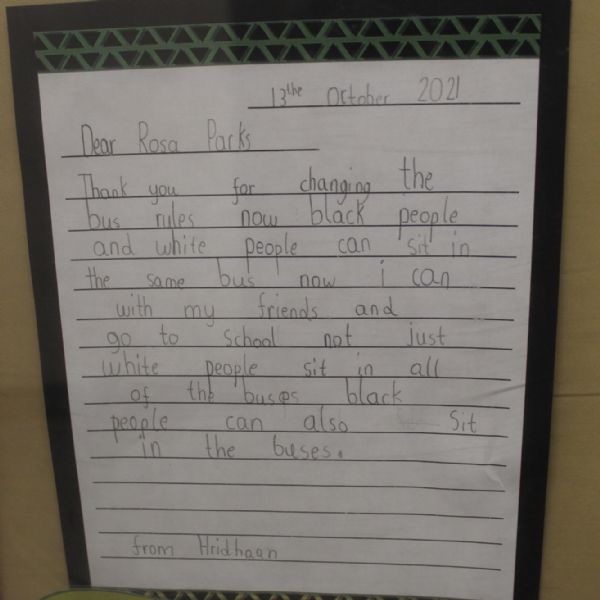 13the October 2021
Dear Rosa Parks
Thank you for changing the
bus rules now black people
and white people can sit in
the same bus now i can
with my friends and
go to school not just
white people sit in all
of the buses black
people can also sit
in the buses.
from Hridhaan